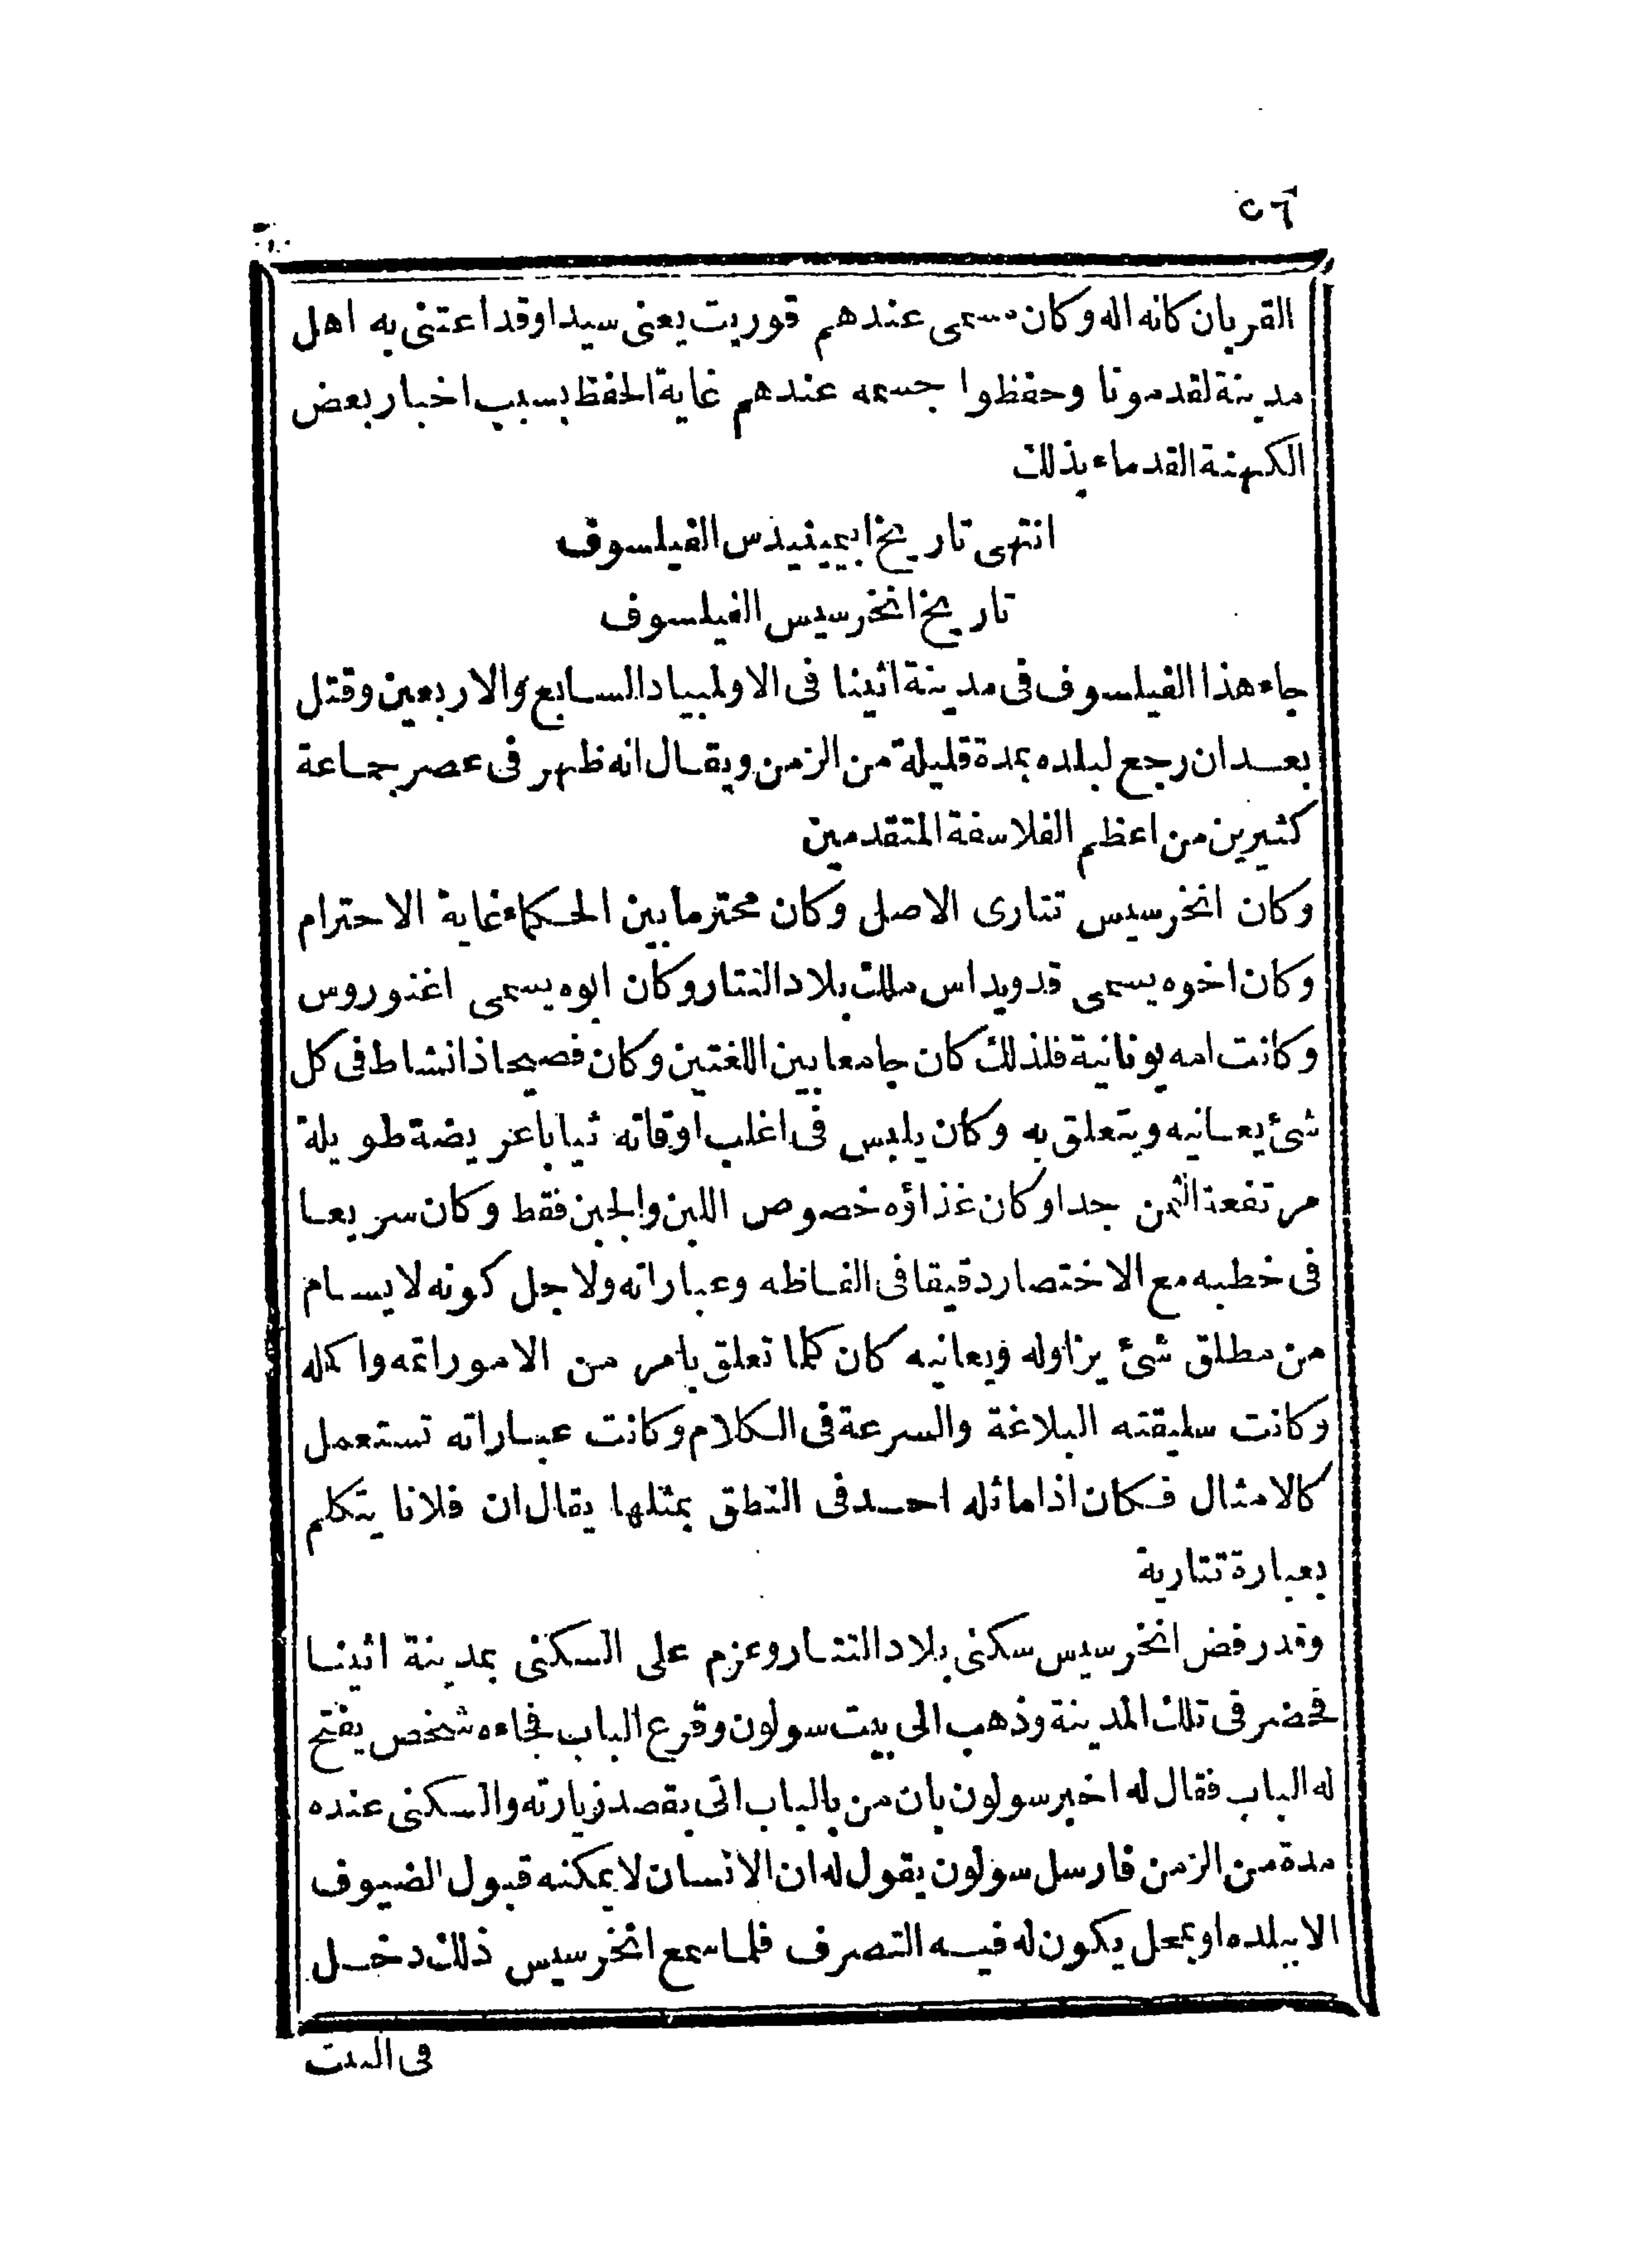 ٥٦
القربان كانه اله وكان مسمى عندهم قوريت يعنى سيدا وقد اعتنى به اهل
مدينة لقدمونا وحفظوا جسمه عندهم غاية الحفظ بسبب اخبار بعض
الكهنة القدماء بذلك
انتهى تاريخ ابيمينيدس الفيلسوف
تاريخ انخرسيس الفيلسوف
جاء هذا الفيلسوف فى مدينة اثينا فى الاولمبياد السابع والاربعين وقتل
بعد ان رجع لبلده بمدة قليلة من الزمن ويقال انه ظهر فى عصر جماعة
كثيرين من اعظم الفلاسفة المتقدمين
وكان انخرسيس تتارى الاصل وكان محترما بين الحكماء غاية الاحترام
وكان اخوه يسمى قدويداس ملك بلاد التتار وكان ابوه يسمى اغنوروس
وكانت امه يونانية فلذلك كان جامعا بين اللغتين وكان فصيحا ذا نشاط فى كل
شئ يعانيه ويتعلق به وكان يلبس فى اغلب اوقاته ثيابا عريضة طويلة
مرتفعة الثمن جدا وكان غذاؤه خصوص اللبن والجبن فقط وكان سريعا
فى خطبه مع الاختصار دقيقا فى الفاظه وعباراته ولاجل كونه لا يسام
من مطلق شئ يزاوله ويعانيه كان كلما تعلق بامر من الامور اتمه واكمله
وكانت سليقته البلاغة والسرعة فى الكلام وكانت عباراته تستعمل
كالامثال فكان اذا ماثله احد فى النطق بمثلها يقال ان فلانا يتكلم
بعبارة تتارية
وقد رفض انخرسيس سكنى بلاد التتار وعزم على السكنى بمدينة اثينا
فحضر فى تلك المدينة وذهب الى بيت سولون وقرع الباب فجاءه شخص يفتح
له الباب فقال له اخبر سولون بان من بالباب اتى بقصد زيارته والسكنى عنده
مدة من الزمن فارسل سولون يقول له ان الانسان لا يمكنه قبول الضيوف
الا ببلده او بمحل يكون له فيه التصرف فلما سمع انخرسيس ذلك دخل
فى البيت